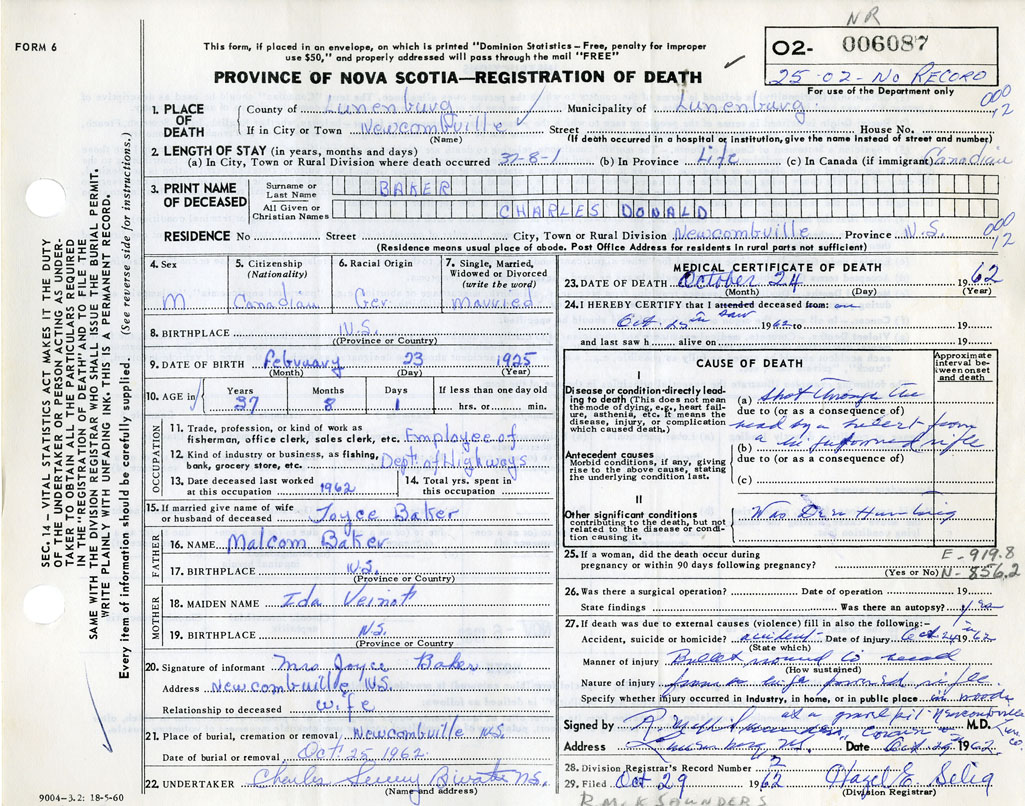 NR
FORM 6
This form, if placed in an envelope, on which is printed "Dominion Statistics – Free, penalty for improper
use $50," and properly addressed will pass through the mail "FREE"
02- 006087
25-02-No RECORD
For use of the Department only
PROVINCE OF NOVA SCOTIA—REGISTRATION OF DEATH
1. PLACE OF DEATH
County of Lunenburg Municipality of Lunenburg
000
12
If in City or Town Newcombville Street House No.
(Name) (If death occurred in a hospital or institution, give the name instead of street and number)
2. LENGTH OF STAY (in years, months and days)
(a) In City, Town or Rural Division where death occurred 37-8-1 (b) In Province Life (c) In Canada (if immigrant) Canadian
3. PRINT NAME OF DECEASED
Surname or Last Name BAKER
All Given or Christian Names CHARLES DONALD
RESIDENCE No Street City, Town or Rural Division Newcombville Province N.S.
000
12
(Residence means usual place of abode. Post Office Address for residents in rural parts not sufficient)
SEC. 14 – VITAL STATISTICS ACT MAKES IT THE DUTY
OF THE UNDERTAKER OR PERSON ACTING AS UNDER-
TAKER TO OBTAIN ALL THE PARTICULARS REQUIRED
IN THE "REGISTRATION OF DEATH" AND TO FILE THE
SAME WITH THE DIVISION REGISTRAR WHO SHALL ISSUE THE BURIAL PERMIT.
WRITE PLAINLY WITH UNFADING INK. THIS IS A PERMANENT RECORD.
Every item of information should be carefully supplied. (See reverse side for instructions.)
4. Sex
M
5. Citizenship
(Nationality)
Canadian
6. Racial Origin
Ger.
7. Single, Married,
Widowed or Divorced
(write the word)
Married
8. BIRTHPLACE N.S.
(Province or Country)
9. DATE OF BIRTH February 23 1925
(Month) (Day) (Year)
10. AGE in
Years Months Days If less than one day old
37 8 1 hrs. or min.
OCCUPATION
11. Trade, profession, or kind of work as
fisherman, office clerk, sales clerk, etc. Employee of
12. Kind of industry or business, as fishing,
bank, grocery store, etc. Dept of Highways
13. Date deceased last worked
at this occupation 1962
14. Total yrs. spent in
this occupation
15. If married give name of wife
or husband of deceased Joyce Baker
FATHER
16. NAME Malcom Baker
17. BIRTHPLACE N.S.
(Province or Country)
MOTHER
18. MAIDEN NAME Ida Veinot
19. BIRTHPLACE N.S.
(Province or Country)
20. Signature of informant Mrs Joyce Baker
Address Newcombville N.S.
Relationship to deceased wife
21. Place of burial, cremation or removal Newcombville N.S.
Date of burial or removal Oct 25 1962
22. UNDERTAKER Charles N.S.
(Name and address)
9004–3.2: 18-5-60
MEDICAL CERTIFICATE OF DEATH
23. DATE OF DEATH October 24 1962
(Month) (Day) (Year)
24. I HEREBY CERTIFY that I attended deceased from: on
saw
Oct. 25th 1962 to 19
and last saw h alive on 19
CAUSE OF DEATH
Approximate
interval be-
tween onset
and death
I
Disease or condition directly lead-
ing to death (This does not mean
the mode of dying, e.g., heart fail-
ure, asthenia, etc. It means the
disease, injury, or complication
which caused death.)
(a) shot through the
due to (or as a consequence of)
head by a bullet from
(b) a high powered rifle
due to (or as a consequence of)
(c)
Antecedent causes
Morbid conditions, if any, giving
rise to the above cause, stating
the underlying condition last.
II
Other significant conditions
contributing to the death, but not
related to the disease or condi-
tion causing it.
Was Deer Hunting
25. If a woman, did the death occur during
pregnancy or within 90 days following pregnancy?
(Yes or No)
E-919.8
N-856.2
26. Was there a surgical operation? Date of operation 19
State findings Was there an autopsy? yes
27. If death was due to external causes (violence) fill in also the following:-
Accident, suicide or homicide? accident Date of injury Oct 24th 1962
(State which)
Manner of injury Bullet wound to head
(How sustained)
Nature of injury from high powered rifle
Specify whether injury occurred in industry, in home, or in public place in woods
at a gravel pit Newcombville
Signed by M.D.
Address Lunenburg, N.S. Date Oct 29th 1962
28. Division Registrar's Record Number 2
29. Filed Oct 29 1962 Hazel E. Selig
(Division Registrar)
R MCK SAUNDERS